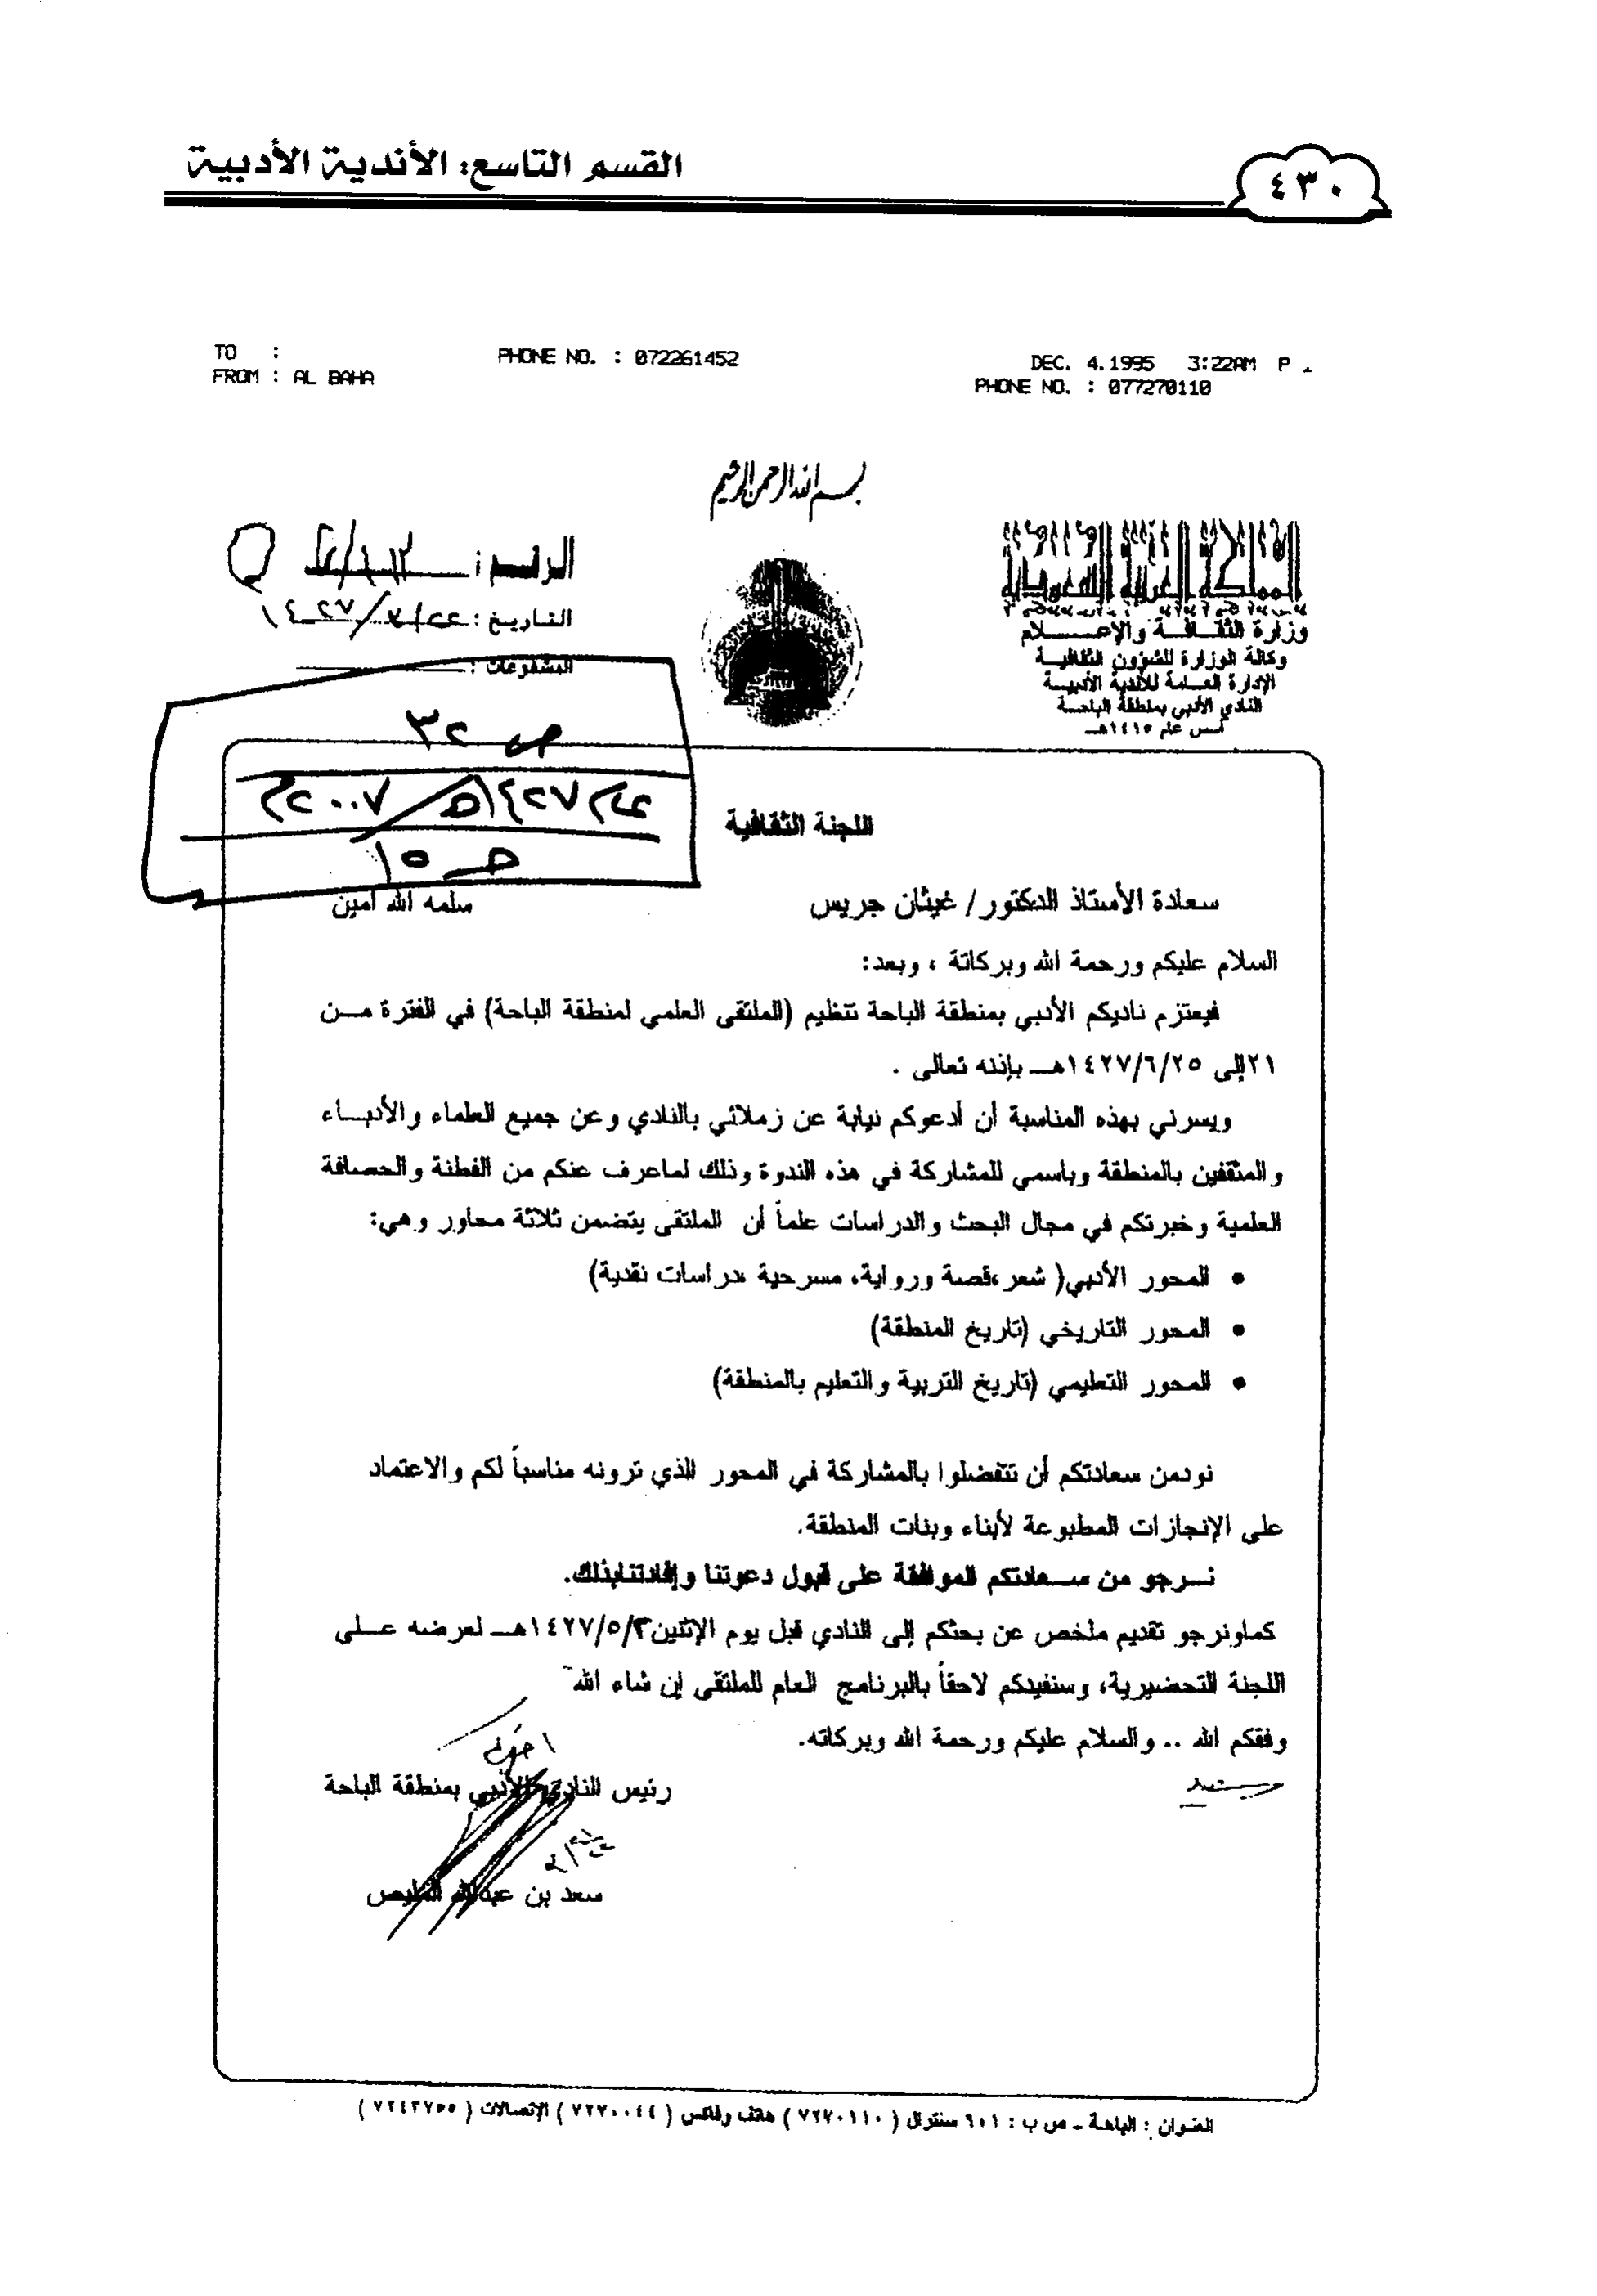 القسم التاسع: الأندية الأدبية
٤٣٠
TO :
FROM : AL BAHA
PHONE NO. : 072261452
DEC. 4.1995 3:22AM P
PHONE NO. : 077270110
بسم الله الرحمن الرحيم
المملكة العربية السعودية
وزارة الثقافة والإعلام
وكالة الوزارة للشؤون الثقافية
الإدارة العامة للأندية الأدبية
النادي الأدبي بمنطقة الباحة
أسس عام ١٤١٥هـ
الرقم :
التاريخ :
المشفوعات :
ص ٣٢
عام ١٤٢٧هـ/٢٠٠٧م
ص ١٥
اللجنة الثقافية
سعادة الأستاذ الدكتور/ غيثان جريس سلمه الله آمين
السلام عليكم ورحمة الله وبركاتة ، وبعد:
فيعتزم ناديكم الأدبي بمنطقة الباحة تنظيم (الملتقى العلمي لمنطقة الباحة) في الفترة من
٢١إلى ١٤٢٧/٦/٢٥هـ بإذنه تعالى .
ويسرني بهذه المناسبة أن أدعوكم نيابة عن زملائي بالنادي وعن جميع العلماء والأدباء
والمثقفين بالمنطقة وباسمي للمشاركة في هذه الندوة وذلك لماعرف عنكم من الفطنة والحصافة
العلمية وخبرتكم في مجال البحث والدراسات علماً أن الملتقى يتضمن ثلاثة محاور وهي:
• المحور الأدبي( شعر ،قصة ورواية، مسرحية ،دراسات نقدية)
• المحور التاريخي (تاريخ المنطقة)
• المحور التعليمي (تاريخ التربية والتعليم بالمنطقة)
نودمن سعادتكم أن تتفضلوا بالمشاركة في المحور الذي ترونه مناسباً لكم والاعتماد
على الإنجازات المطبوعة لأبناء وبنات المنطقة.
نرجو من سعادتكم الموافقة على قبول دعوتنا وإفادتنابذلك.
كماونرجو تقديم ملخص عن بحثكم إلى النادي قبل يوم الإثنين١٤٢٧/٥/٣هـ لعرضه على
اللجنة التحضيرية، وسنفيدكم لاحقاً بالبرنامج العام للملتقى إن شاء الله
وفقكم الله .. والسلام عليكم ورحمة الله وبركاته.
رئيس النادي الأدبي بمنطقة الباحة
سعد بن عبدالله المليص
العنوان : الباحة ـ ص ب : ٦٠١ سنترال ( ٧٢٧٠١١٠ ) هاتف وفاكس ( ٧٢٧٠٠٤٤ ) الإتصالات ( ٧٢٤٣٧٥٥ )